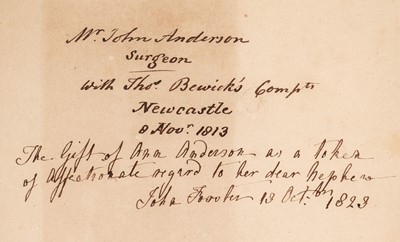 Mr. John Anderson
Surgeon
With Thos. Bewick's Compts
Newcastle
8 Novr. 1813
The Gift of Ann Anderson as a token
of Affectionate regard to her dear Nephew
John Fowler 13 Octbr 1823